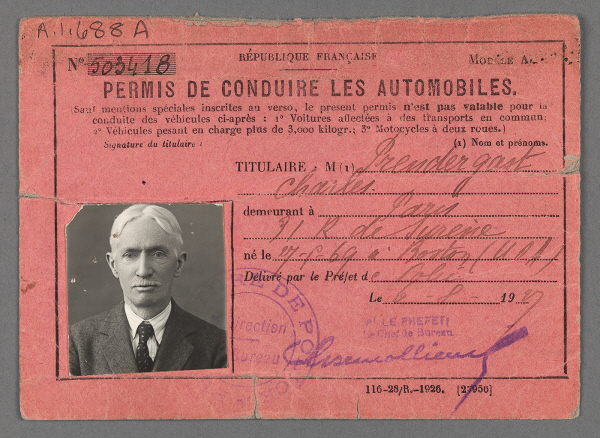 A.1.688 A
RÉPUBLIQUE FRANÇAISE
Nº 503418
MODÈLE A.
PERMIS DE CONDUIRE LES AUTOMOBILES.
(Sauf mentions spéciales inscrites au verso, le présent permis n'est pas valable pour la
conduite des véhicules ci-après : 1º Voitures affectées à des transports en commun;
2º Véhicules pesant en charge plus de 3,000 kilogr.; 3º Motocycles à deux roues.)
Signature du titulaire :
(1) Nom et prénoms.
TITULAIRE : M (1) Prendergast
Charles
demeurant à Paris
31 R de Seine
né le 27-5-69 à Boston (U.S.A)
Délivré par le Préfet de Police
Le 19
DE PO
Direction
Bureau
LE PRÉFET
Le Chef de Bureau
116-28/R.-1926. [27956]